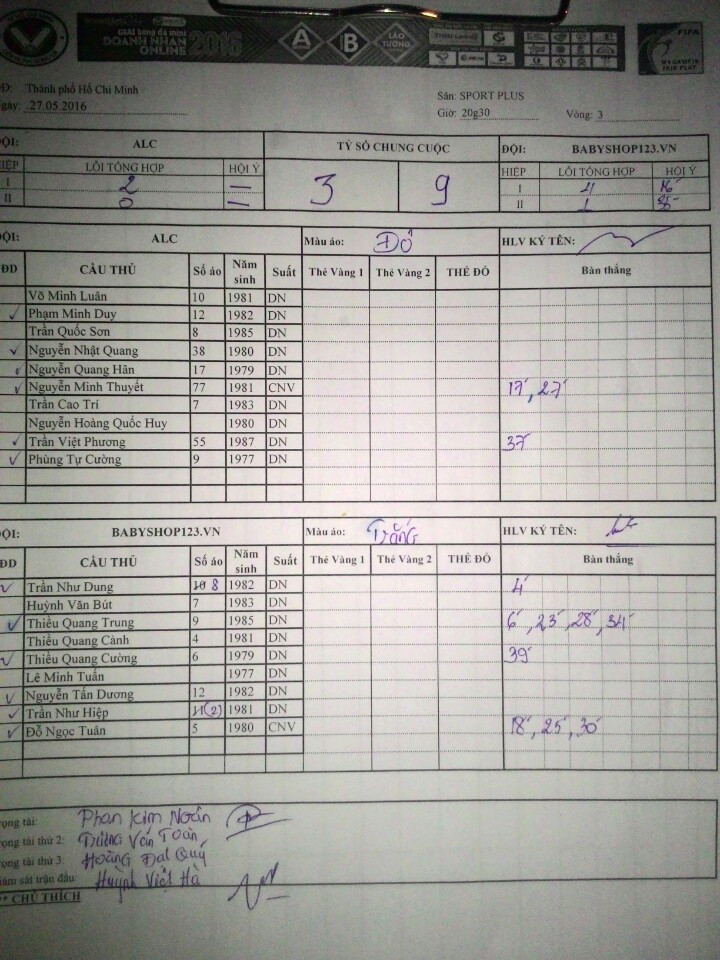 GIẢI bóng đá mini
DOANH NHÂN
ONLINE 2016
A B LÃO TƯỚNG
FIFA
FAIR PLAY
Thành phố Hồ Chí Minh
27.05.2016
Sân: SPORT PLUS
Giờ: 20g30 Vòng: 3
ĐỘI: ALC TỶ SỐ CHUNG CUỘC ĐỘI: BABYSHOP123.VN
HIỆP LỖI TỔNG HỢP HỘI Ý 3 9 HIỆP LỖI TỔNG HỢP HỘI Ý
I 2 — I 4 16'
II 0 — II 1
ĐỘI: ALC Màu áo: Đỏ HLV KÝ TÊN:
DD CẦU THỦ Số áo Năm sinh Suất Thẻ Vàng 1 Thẻ Vàng 2 THẺ ĐỎ Bàn thắng
Võ Minh Luân 10 1981 DN
✓ Phạm Minh Duy 12 1982 DN
Trần Quốc Sơn 8 1985 DN
✓ Nguyễn Nhật Quang 38 1980 DN
✓ Nguyễn Quang Hân 17 1979 DN
✓ Nguyễn Minh Thuyết 77 1981 CNV 17', 27'
Trần Cao Trí 7 1983 DN
Nguyễn Hoàng Quốc Huy 1980 DN
✓ Trần Việt Phương 55 1987 DN 37'
✓ Phùng Tự Cường 9 1977 DN
ĐỘI: BABYSHOP123.VN Màu áo: Trắng HLV KÝ TÊN:
DD CẦU THỦ Số áo Năm sinh Suất Thẻ Vàng 1 Thẻ Vàng 2 THẺ ĐỎ Bàn thắng
✓ Trần Như Dung 10 8 1982 DN 4'
Huỳnh Văn Bút 7 1983 DN
✓ Thiều Quang Trung 9 1985 DN 6', 23', 28', 34'
Thiều Quang Cảnh 4 1981 DN
✓ Thiều Quang Cường 6 1979 DN 39'
Lê Minh Tuấn 1977 DN
✓ Nguyễn Tấn Dương 12 1982 DN
✓ Trần Như Hiệp 11 (2) 1981 DN
✓ Đỗ Ngọc Tuân 5 1980 CNV 18', 25', 30'
rọng tài: Phan Kim Noân
rọng tài thứ 2: Trương Văn Toàn
rọng tài thứ 3: Hoàng Đại Quý
iám sát trận đấu: Huỳnh Việt Hà
** CHÚ THÍCH